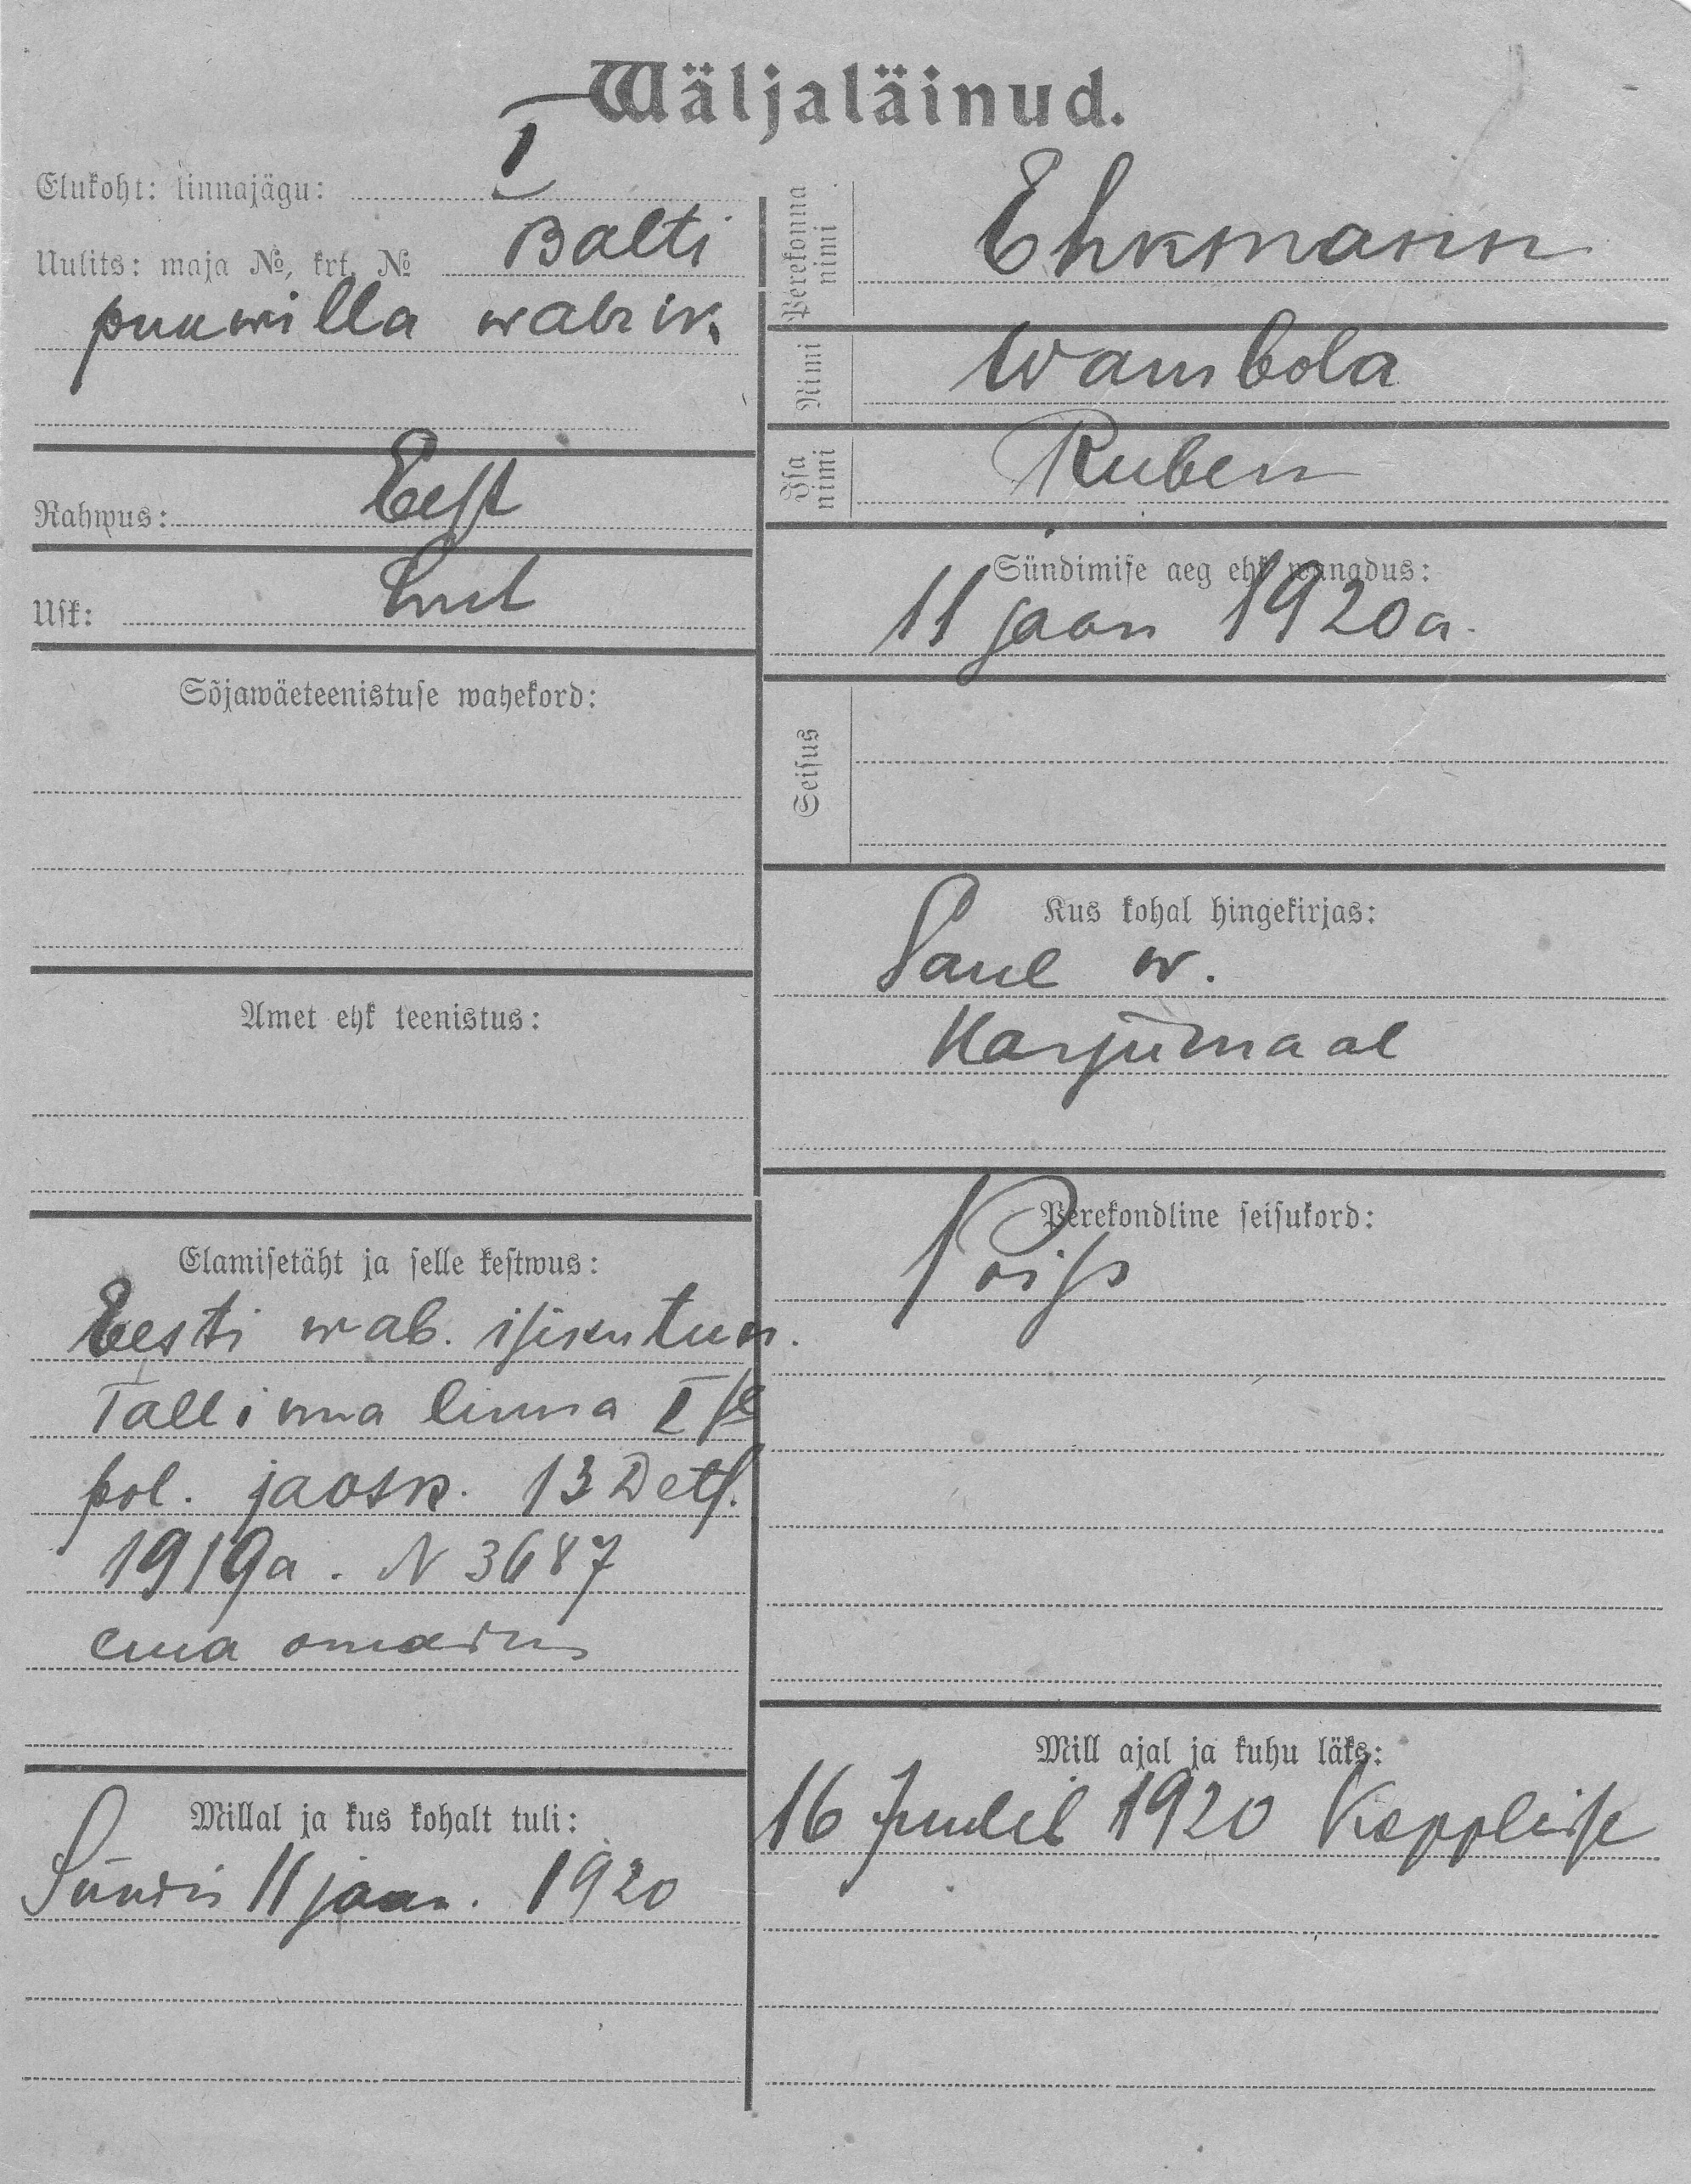 Wäljaläinud.
Elukoht: linnajägu: I
Uulits: maja №, krt. № Balti
puuwilla wabrik.
Rahwus: Eest
Usk: Lut
Sõjawäeteenistuse wahekord:
Amet ehk teenistus:
Elamisetäht ja selle kestwus:
Eesti wab. isikutun.
Tallinna linna I se
pol. jaosk. 13 Dets.
1919a. N 3687
ema omadus
Millal ja kus kohalt tuli:
Sündis 11 jaan. 1920
Perekonna nimi Ehkmann
Nimi Wambola
Isa nimi Ruben
Sündimise aeg ehk wanadus:
11 jaan 1920a.
Seisus
Kus kohal hingekirjas:
Saue w.
Harjumaal
Perekondline seisukord:
Poiss
Mill ajal ja kuhu läks:
16 Juulil 1920 Kopplisse